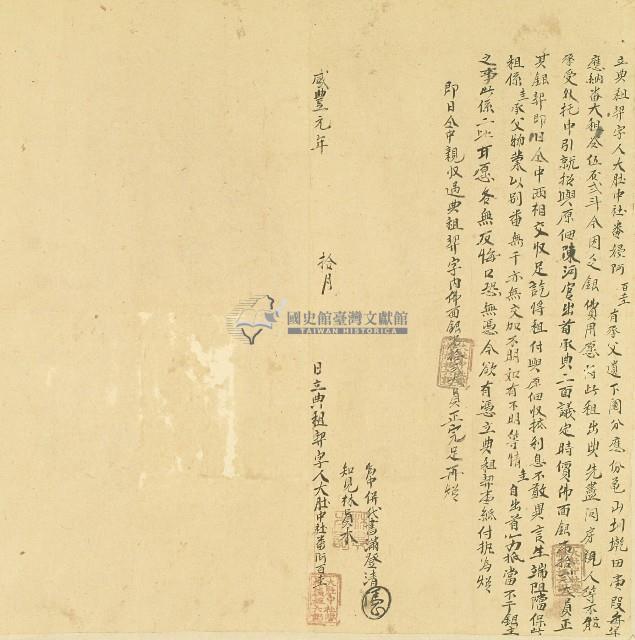 立典租契字人大肚中社番阿百士有承父遺下鬮分應份山圳壠田壹段每年
應納番大租谷伍石貳斗今因乏銀費用愿將此租出典先盡問房親人等不能
承受外托中引就招與原佃陳河官出首承典二面議定時價佛面銀拾大員正
其銀契即日仝中兩相交收足訖將租付與原佃收抵利息不敢異言生端阻當保此
租係承父物業以別番無干亦無交加不明如有不明等情自出首抵當不干銀主
之事此係二比甘愿各無反悔口恐無憑今欲有憑立典租契壹紙付執為炤
即日仝中親收過典租契字內佛面銀拾大員正完足再炤
為中併代書潘登清
知見林
咸豐元年 拾月 日立典租契字人大肚中社番阿百
國史館臺灣文獻館
TAIWAN HISTORICA